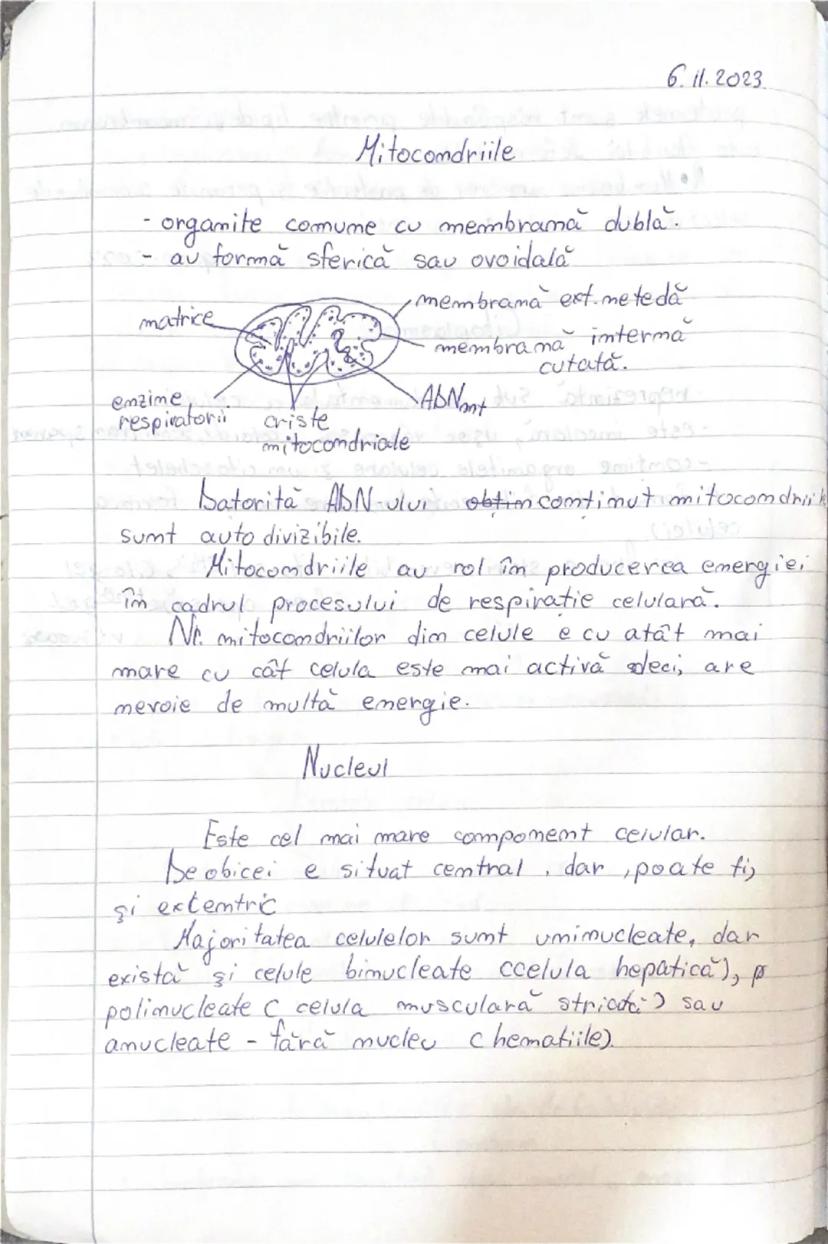 6.11.2023
Mitocondriile
- organite comune cu membrană dublă.
- au formă sferică sau ovoidală
matrice
membrană ext. netedă
membrană internă
cutată.
enzime
respiratorii
criste
mitocondriale
ADNmt
Datorită ADN-ului obțin conținut mitocondriile
sunt auto divizibile.
Mitocondriile au rol în producerea energiei
în cadrul procesului de respirație celulară.
Nr. mitocondriilor din celule e cu atât mai
mare cu cât celula este mai activă deci, are
nevoie de multă energie.
Nucleul
Este cel mai mare component celular.
De obicei e situat central, dar, poate fi,
și excentric
Majoritatea celulelor sunt uninucleate, dar
există și celule binucleate (celula hepatică), p
polinucleate (celula musculară striată) sau
anucleate - fără nucleu (hematiile)